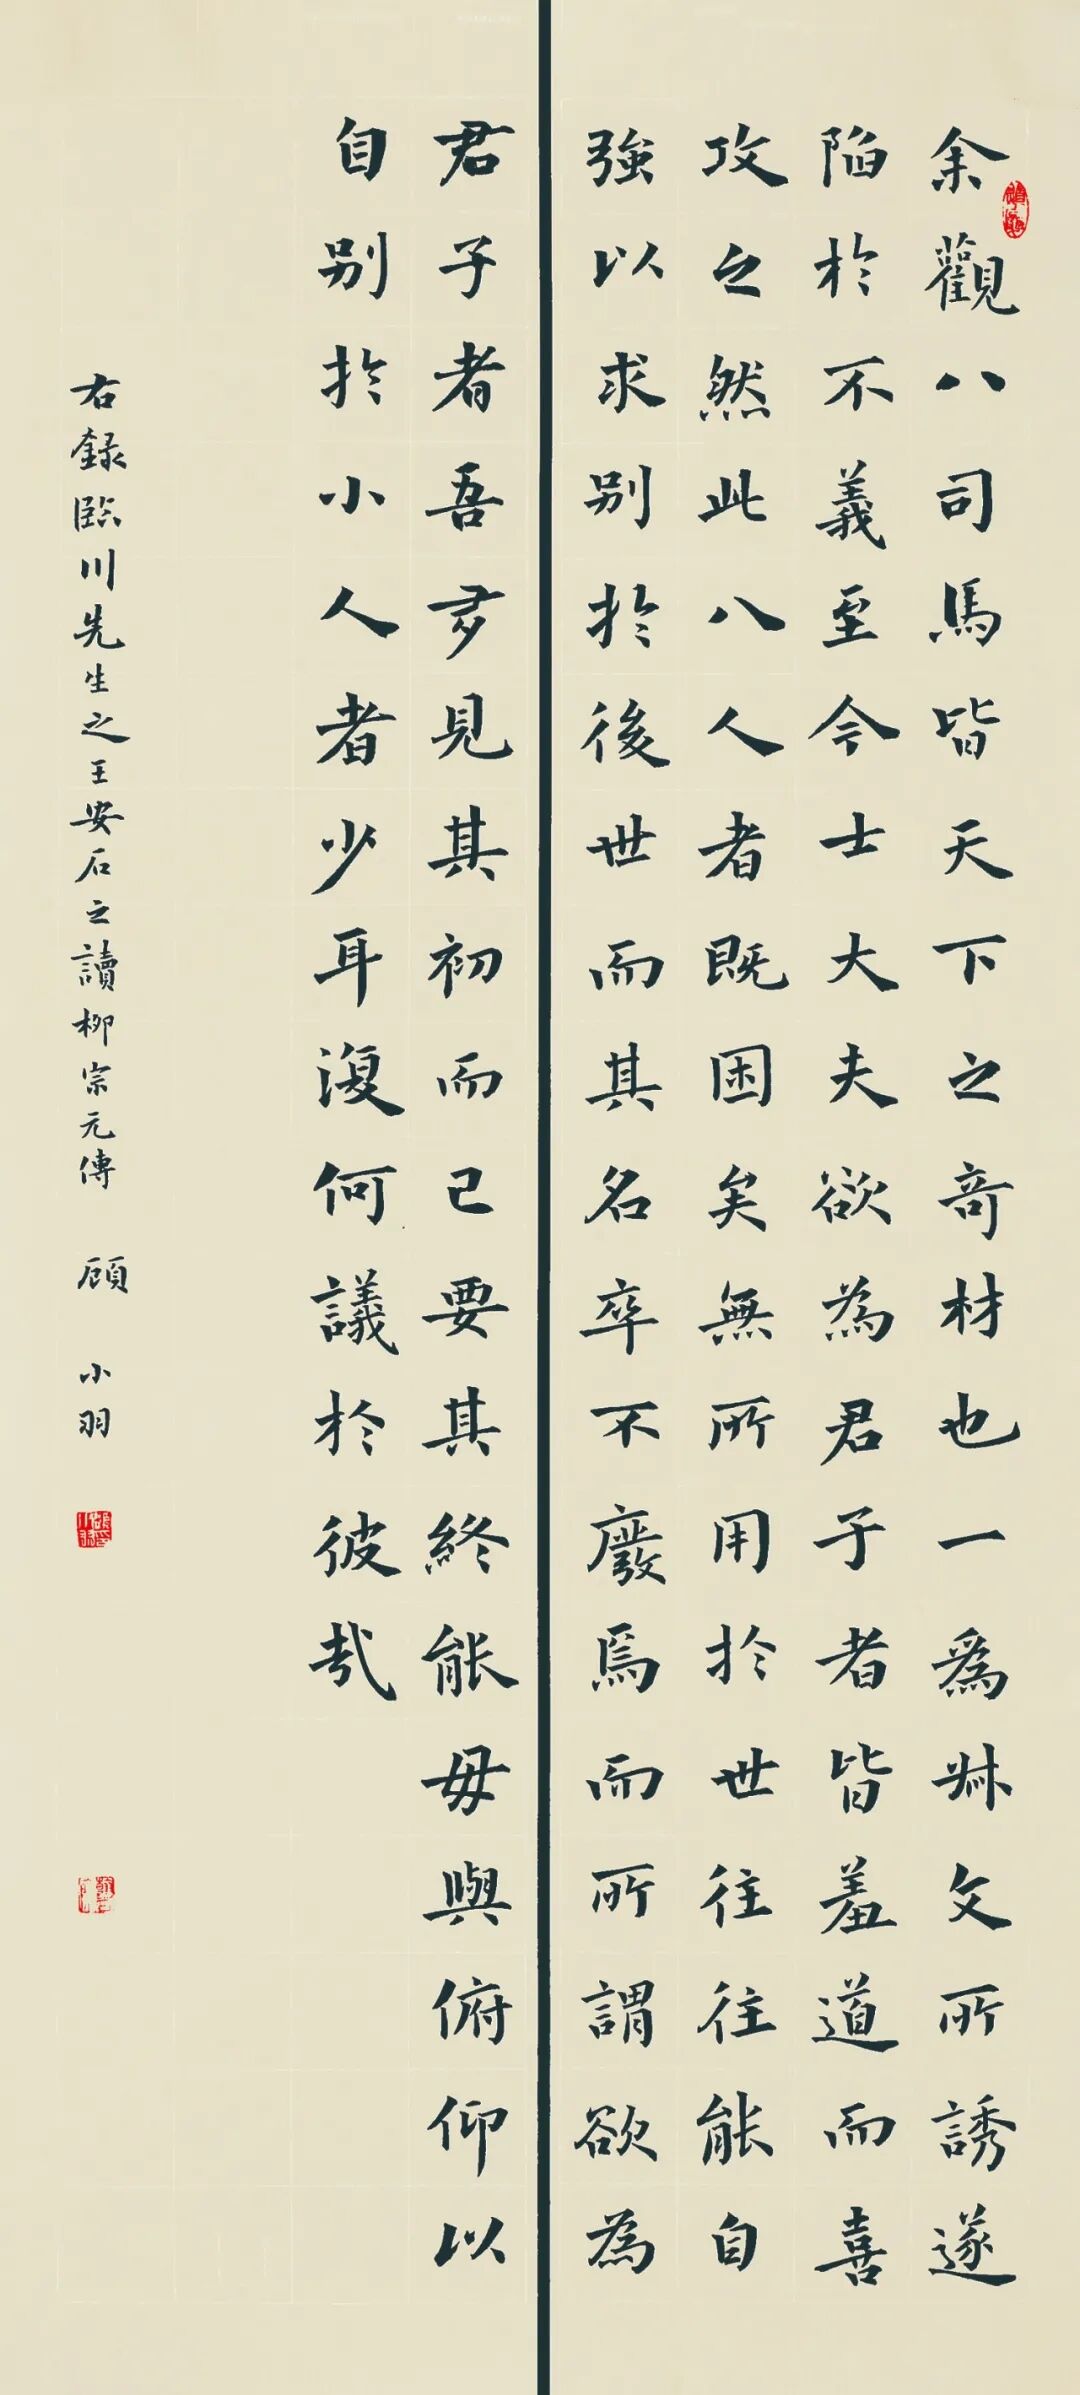 余觀八司馬皆天下之竒材也一爲叔文所誘遂
陷於不義至今士大夫欲為君子者皆羞道而喜
攻之然此八人者既困矣無所用於世往往能自
強以求别於後世而其名卒不廢焉而所謂欲為
君子者吾多見其初而已要其終能毋與俯仰以
自别於小人者少耳復何議於彼哉
右録臨川先生之王安石之讀柳宗元傳 顧小羽